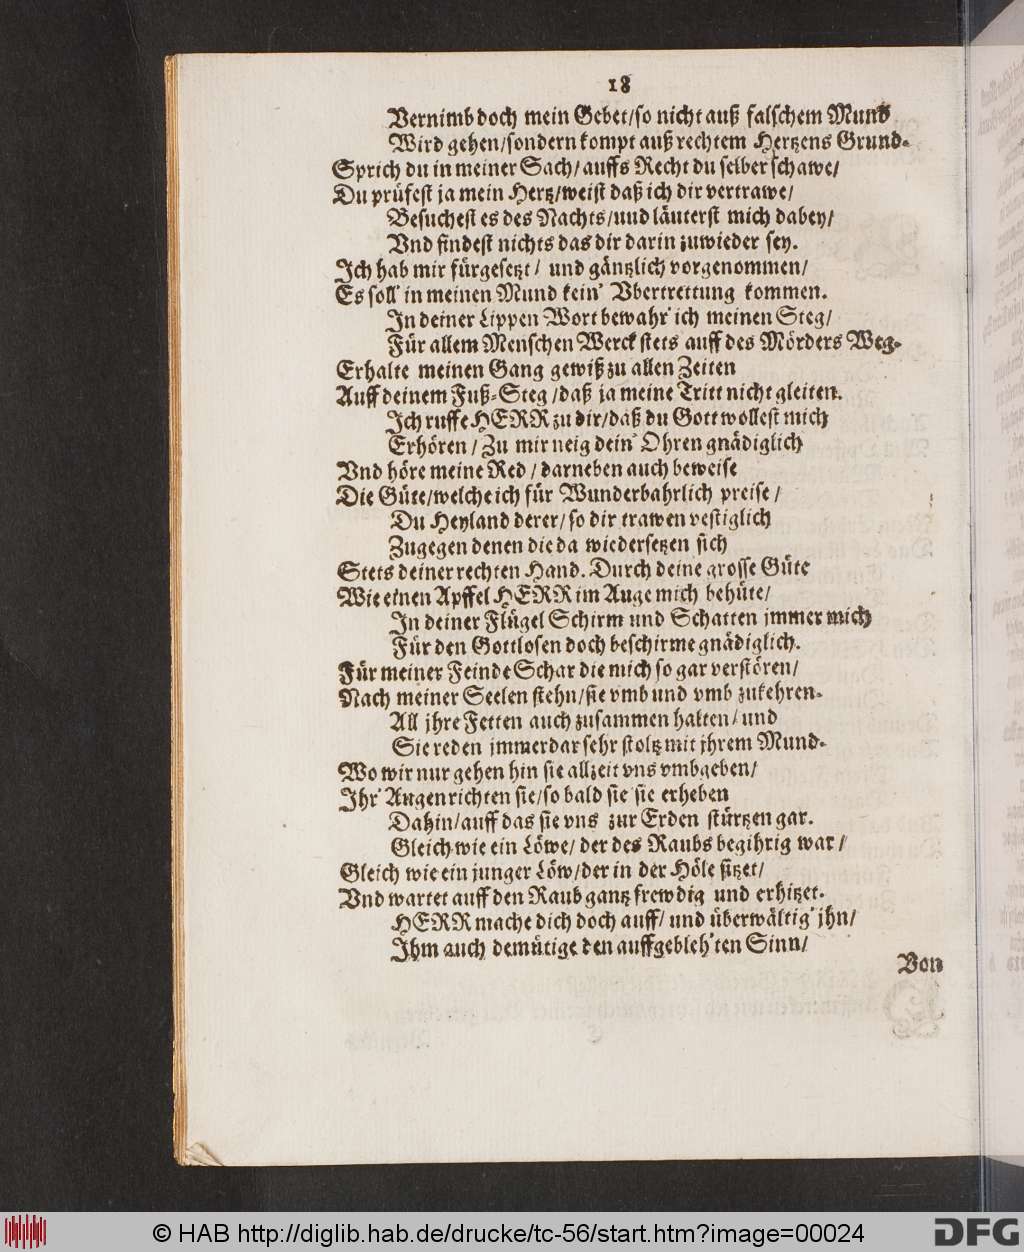 18
Vernimb doch mein Gebet/so nicht auß falschem Mund
Wird gehen/sondern kompt auß rechtem Hertzens Grund.
Sprich du in meiner Sach/auffs Recht du selber schawe/
Du prüfest ja mein Hertz/weist daß ich dir vertrawe/
Besuchest es des Nachts/und läuterst mich dabey/
Vnd findest nichts das dir darin zuwieder sey.
Ich hab mir fürgesetzt/ und gäntzlich vorgenommen/
Es soll' in meinen Mund kein' Vbertrettung kommen.
In deiner Lippen Wort bewahr' ich meinen Steg/
Für allem Menschen Werck stets auff des Mörders Weg.
Erhalte meinen Gang gewiß zu allen Zeiten
Auff deinem Fuß-Steg/daß ja meine Tritt nicht gleiten.
Ich ruffe HERR zu dir/daß du Gott wollest mich
Erhören/Zu mir neig dein' Ohren gnädiglich
Vnd höre meine Red/darneben auch beweise
Die Güte/welche ich für Wunderbahrlich preise/
Du Heyland derer/so dir trawen vestiglich
Zugegen denen die da wiedersetzen sich
Stets deiner rechten Hand. Durch deine grosse Güte
Wie einen Apffel HERR im Auge mich behüte/
In deiner Flügel Schirm und Schatten jmmer mich
Für den Gottlosen doch beschirme gnädiglich.
Für meiner Feinde Schar die mich so gar verstören/
Nach meiner Seelen stehn/sie vmb und vmb zukehren.
All jhre Fetten auch zusammen halten/und
Sie reden jmmerdar sehr stoltz mit jhrem Mund.
Wo wir nur gehen hin sie allzeit vns vmbgeben/
Ihr' Augen richten sie/so bald sie sie erheben
Dahin/auff das sie vns zur Erden stürtzen gar.
Gleich wie ein Löwe/der des Raubs begihrig war/
Gleich wie ein junger Löw/der in der Höle sitzet/
Vnd wartet auff den Raub gantz frewdig und erhitzet.
HERR mache dich doch auff/und überwältig' jhn/
Ihm auch demütige den auffgebleh'ten Sinn/
Von
© HAB http://diglib.hab.de/drucke/tc-56/start.htm?image=00024
DFG